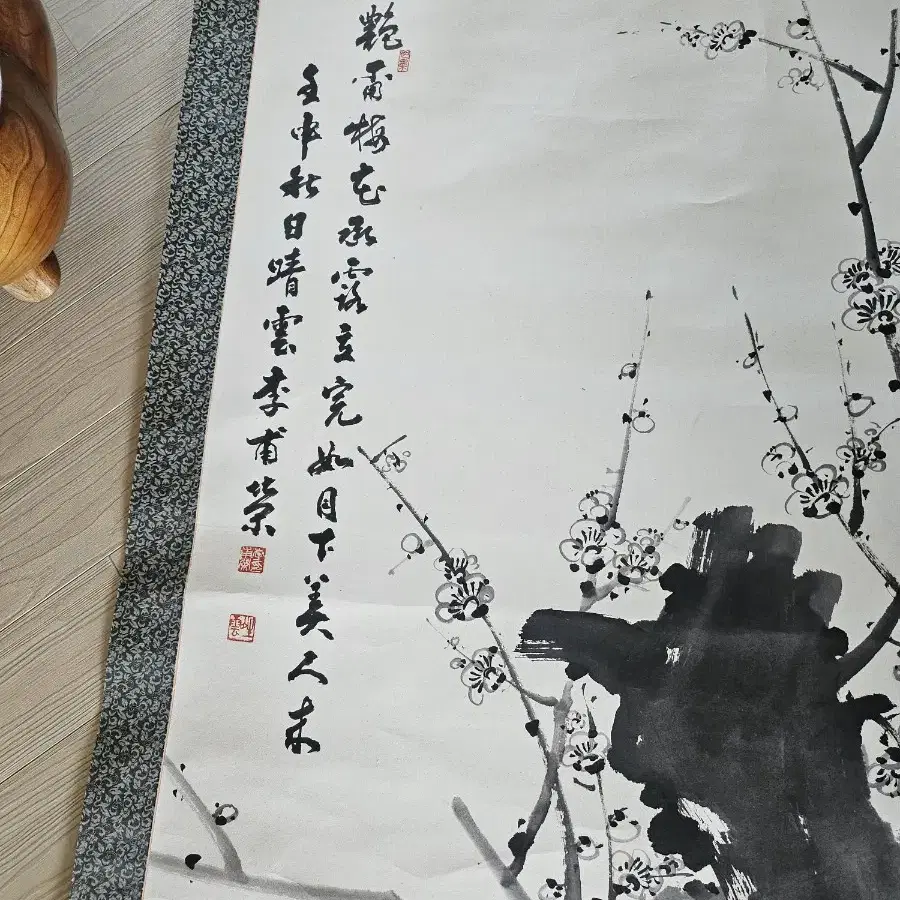 艷爾梅花承露立完如月下美人來
壬申秋日晴雲李甫榮
晴雲